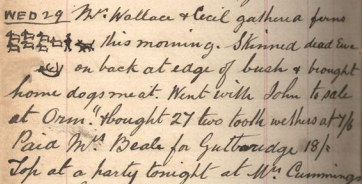 WED 29 Mrs. Wallace & Cecil gathered ferns
this morning. Skinned dead Ewe
on back at edge of bush & brought
home dogs meat. Went with John to sale
at Orm.d & bought 27 two tooth wethers at 7/6
Paid Mrs Beale for Gutteridge 18/-
Top at a party tonight at Mrs. Cummings